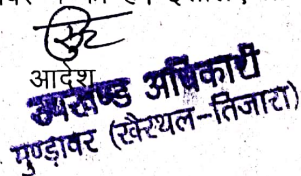 आदेश
उपखण्ड अधिकारी
मुण्डावर (खैरथल-तिजारा)